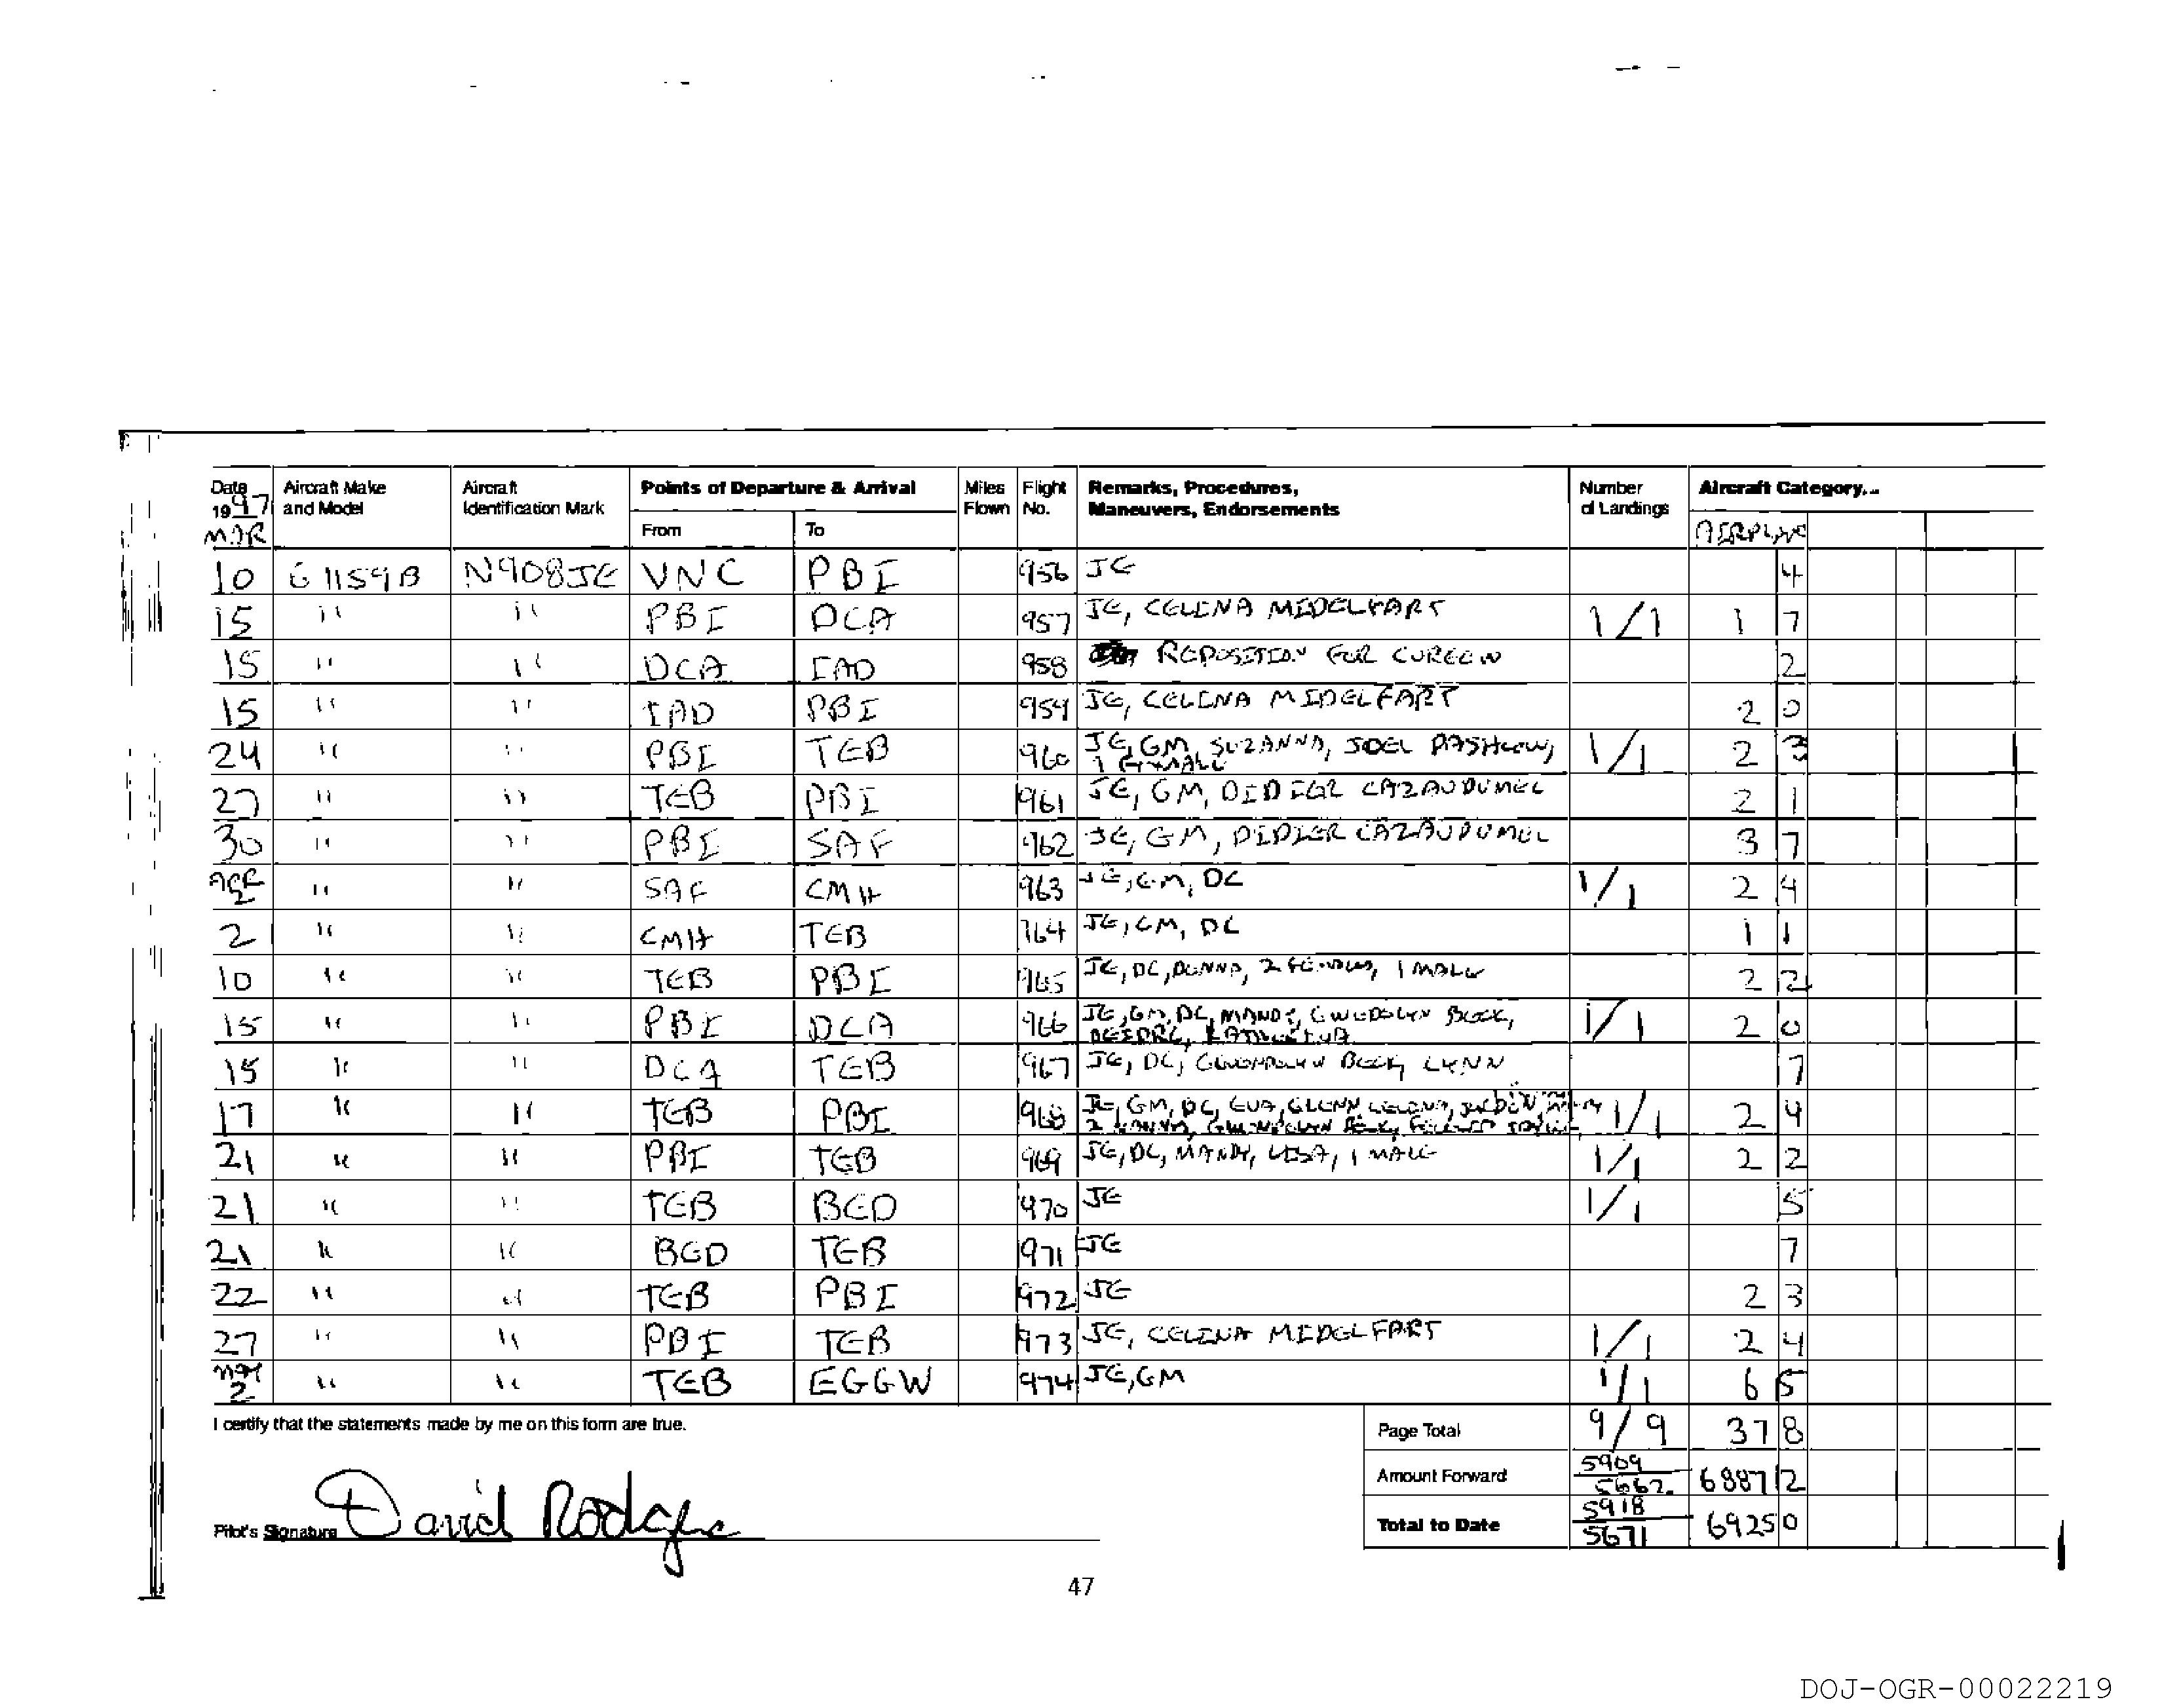 Date Aircraft Make Aircraft Points of Departure & Arrival Miles Flight Remarks, Procedures, Number Aircraft Category...
1997 and Model Identification Mark Flown No. Maneuvers, Endorsements of Landings
MAR From To AIRPLANE
10 G1159B N908JE VNC PBI 956 JE 4
15 " " PBI DCA 957 JE, CELINA MIDELFART 1/1 1 7
15 " " DCA IAD 958 REPOSITION FOR CURFEW 2
15 " " IAD PBI 959 JE, CELINA MIDELFART 2 0
24 " " PBI TEB 960 JE, GM, SUZANNA, JOEL PASHCOW, 1/1 2 3
1 FEMALE
27 " " TEB PBI 961 JE, GM, DIDIER CAZAUDUMEC 2 1
30 " " PBI SAF 962 JE, GM, DIDIER CAZAUDUMEC 3 7
APR
2 " " SAF CMH 963 JE, GM, DC 1/1 2 4
2 " " CMH TEB 964 JE, GM, DC 1 1
10 " " TEB PBI 965 JE, DC, DONNA, 2 FEMALES, 1 MALE 2 2
15 " " PBI DCA 966 JE, GM, DC, MANDY, GWENDOLYN BECK, 1/1 2 0
15 " " DCA TEB 967 JE, DC, GWENDOLYN BECK, LYNN 7
17 " " TEB PBI 968 JE, GM, DC, EVA, GLENN 1/1 2 4
GWENDOLYN BECK,
21 " " PBI TEB 969 JE, DC, MANDY, LISA, 1 MALE 1/1 2 2
21 " " TEB BED 970 JE 1/1 5
21 " " BED TEB 971 JE 7
22 " " TEB PBI 972 JE 2 3
27 " " PBI TEB 973 JE, CELINA MIDELFART 1/1 2 4
MAY
2 " " TEB EGGW 974 JE, GM 1/1 6 5
I certify that the statements made by me on this form are true. Page Total 9/9 378
Amount Forward 5909 5662 6887 2
Pilot's Signature David Rodgers Total to Date 5918 5671 6925 0
47
DOJ-OGR-00022219